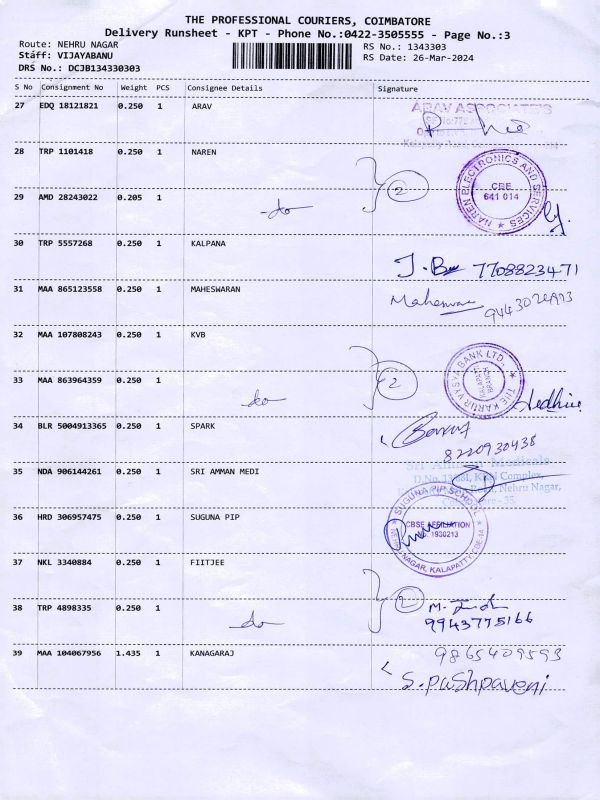 THE PROFESSIONAL COURIERS, COIMBATORE
Delivery Runsheet - KPT - Phone No.:0422-3505555 - Page No.:3
Route: NEHRU NAGAR
RS No.: 1343303
Staff: VIJAYABANU
RS Date: 26-Mar-2024
DRS No.: DCJB134330303
S No Consignment No Weight PCS Consignee Details Signature
27 EDQ 18121821 0.250 1 ARAV
ARAV ASSOCIATES
28 TRP 1101418 0.250 1 NAREN
NAREN ELECTRONICS AND SERVICES
CBE
641 014
2
29 AMD 28243022 0.205 1 -do
30 TRP 5557268 0.250 1 KALPANA
7708823471
31 MAA 865123558 0.250 1 MAHESWARAN
32 MAA 107808243 0.250 1 KVB
THE KARUR VYSYA BANK LTD.
2
33 MAA 863964359 0.250 1 do
34 BLR 5004913365 0.250 1 SPARK
8220930438
35 NDA 906144261 0.250 1 SRI AMMAN MEDI
Sri Amman Medicals
36 HRD 306957475 0.250 1 SUGUNA PIP
SUGUNA PIP SCHOOL
CBSE AFFILIATION
No. 1930213
NEHRU NAGAR, KALAPATTY, CBE-14
37 NKL 3340884 0.250 1 FIITJEE
2
38 TRP 4898335 0.250 1 do
9943775166
39 MAA 104067956 1.435 1 KANAGARAJ
9865409593
S. pushpaveni